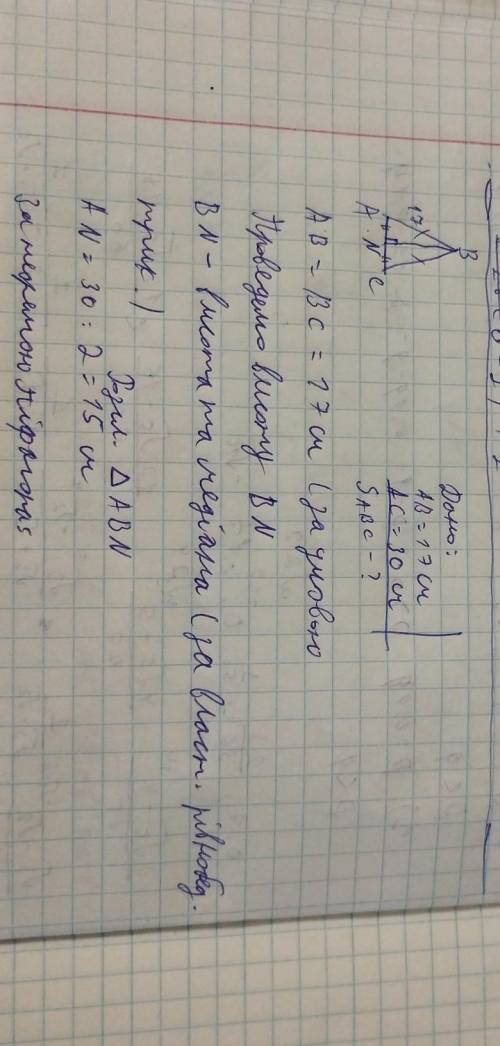 B
17
A N C
Дано:
AB = 17 см
AC = 30 см
SABC - ?
AB = BC = 17 см (за умовою
Проведемо висоту BN
BN - висота та медіана (за власт. рівнобед.
трик.)
Розгл. △ABN
AN = 30 : 2 = 15 см
За теоремою Піфагора: